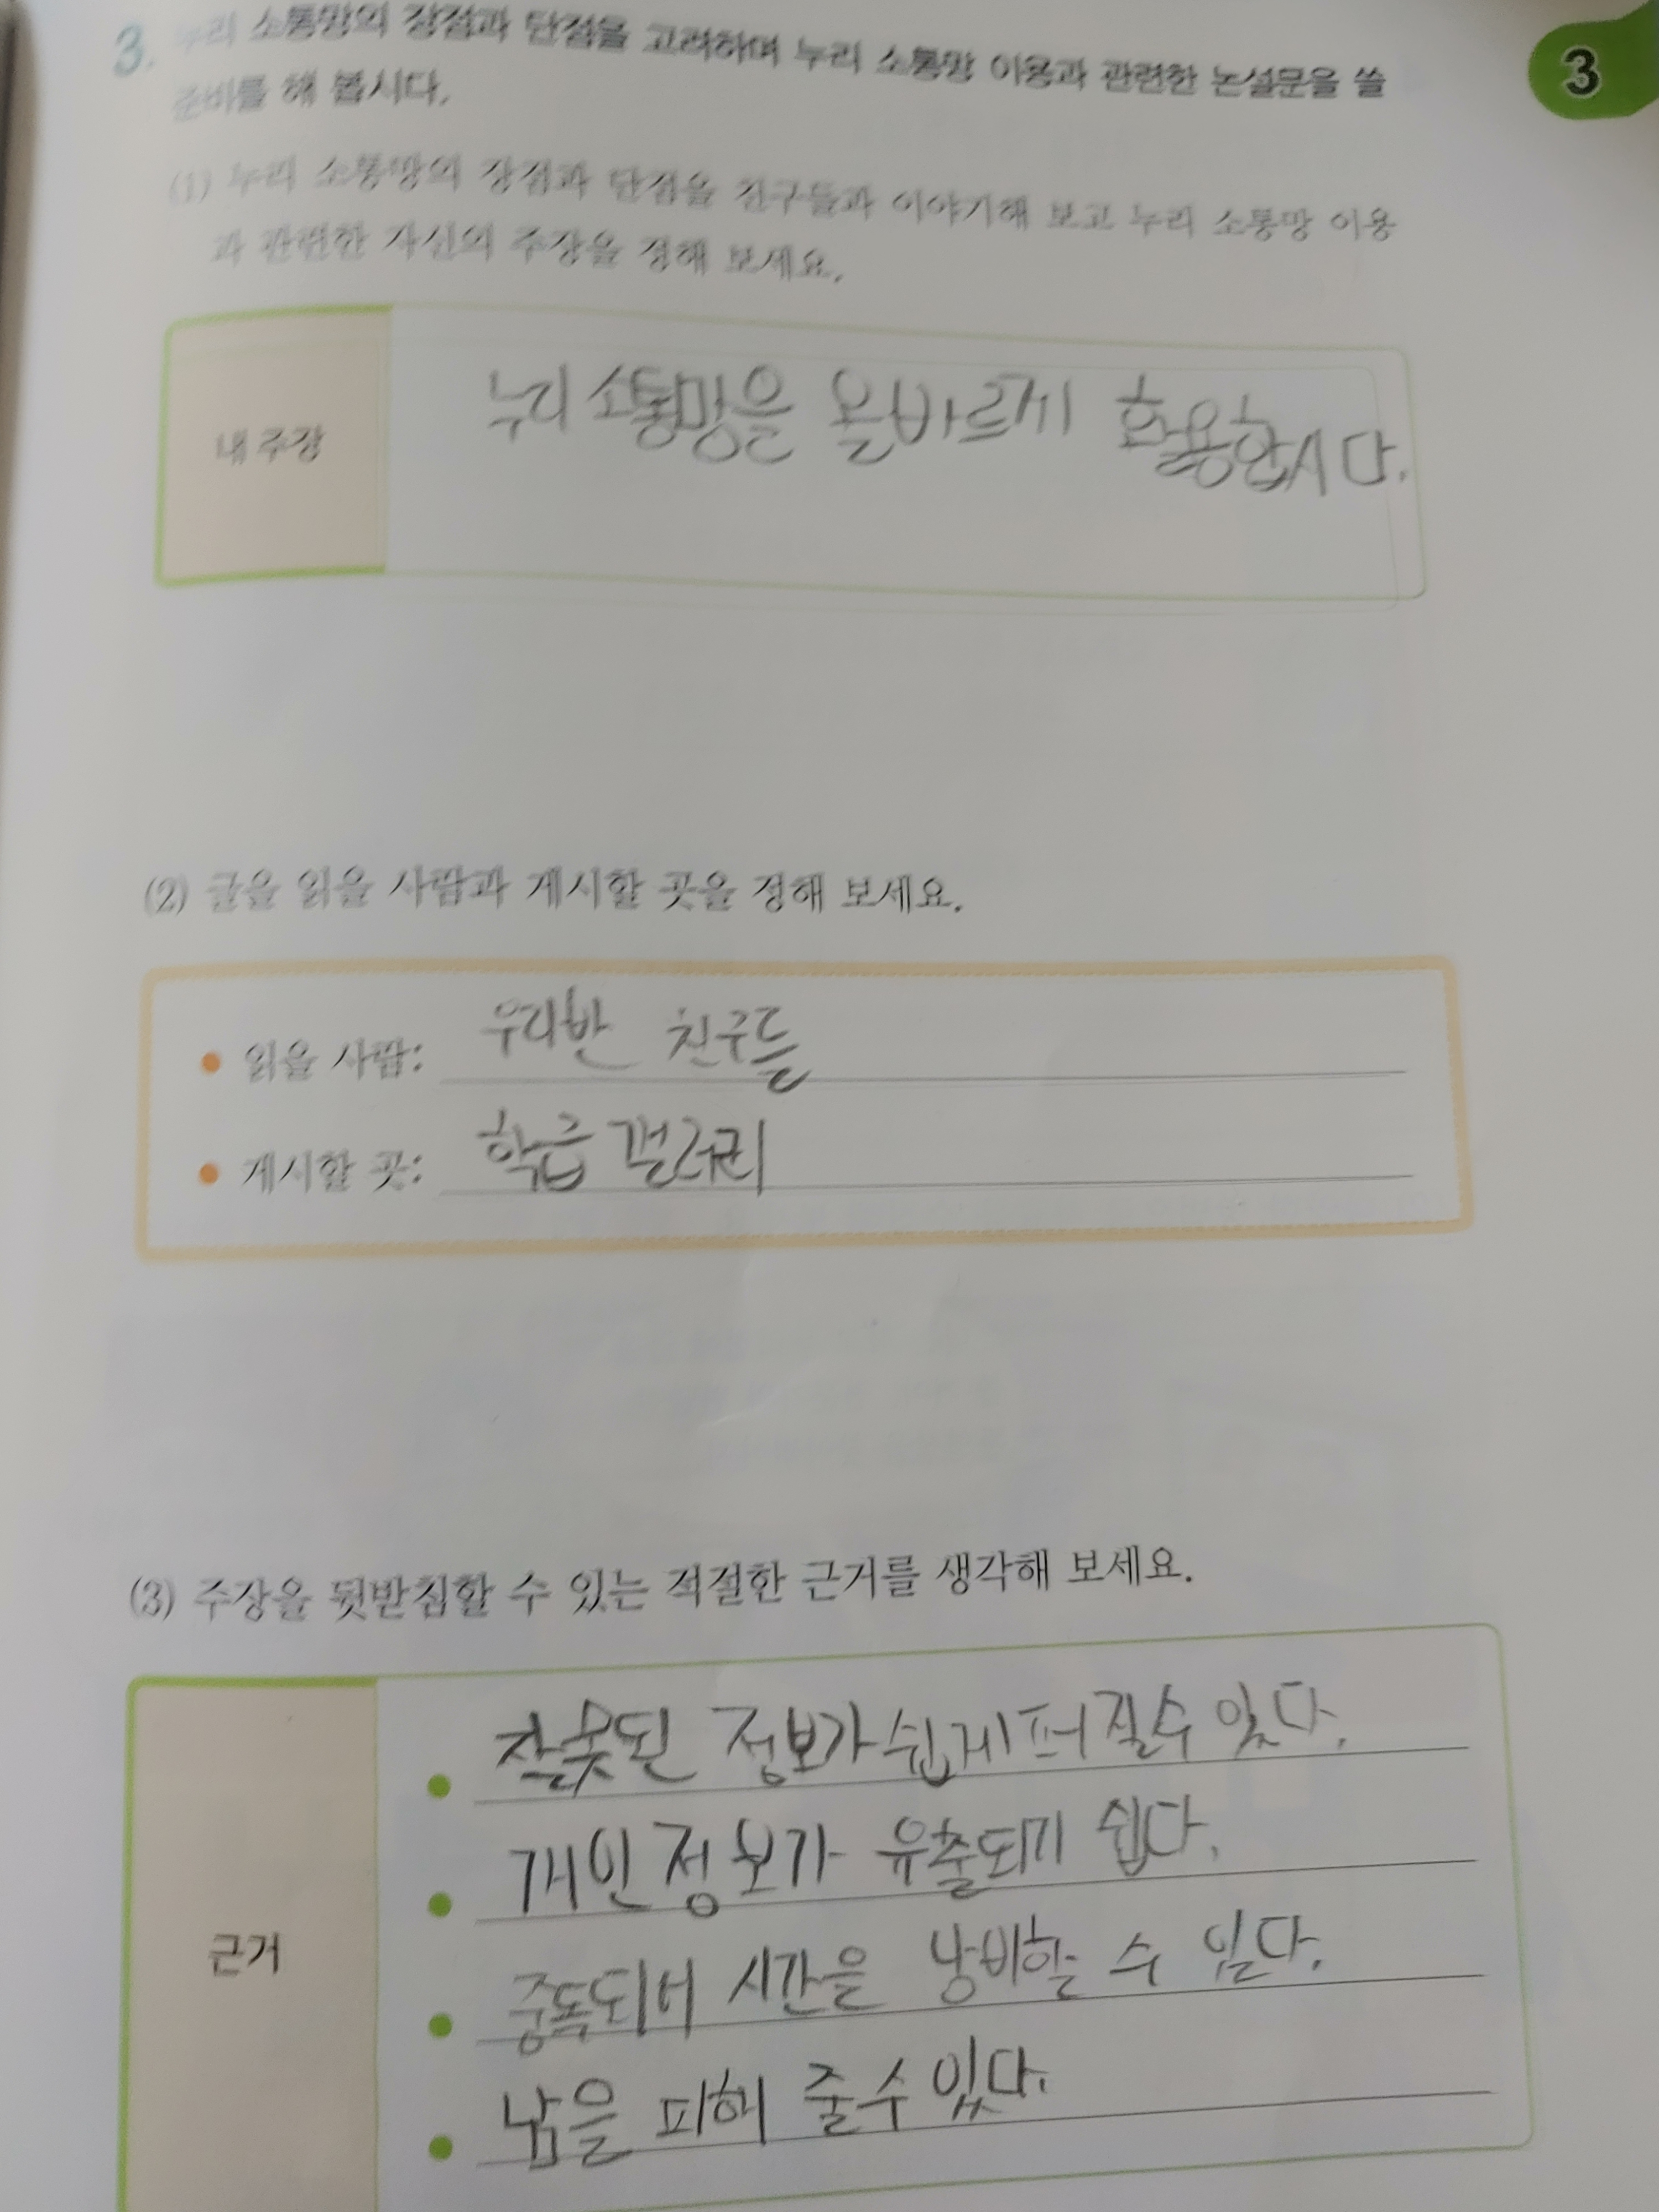 3. 누리 소통망의 장점과 단점을 고려하며 누리 소통망 이용과 관련한 논설문을 쓸
준비를 해 봅시다.
3
(1) 누리 소통망의 장점과 단점을 친구들과 이야기해 보고 누리 소통망 이용
과 관련한 자신의 주장을 정해 보세요.
내 주장
누리 소통망을 올바르게 활용합시다.
(2) 글을 읽을 사람과 게시할 곳을 정해 보세요.
• 읽을 사람: 우리반 친구들
• 게시할 곳: 학급 갤러리
(3) 주장을 뒷받침할 수 있는 적절한 근거를 생각해 보세요.
근거
• 잘못된 정보가 쉽게 퍼질수 있다.
• 개인정보가 유출되기 쉽다.
• 중독되어 시간을 낭비할 수 있다.
• 남을 피해 줄수 있다.